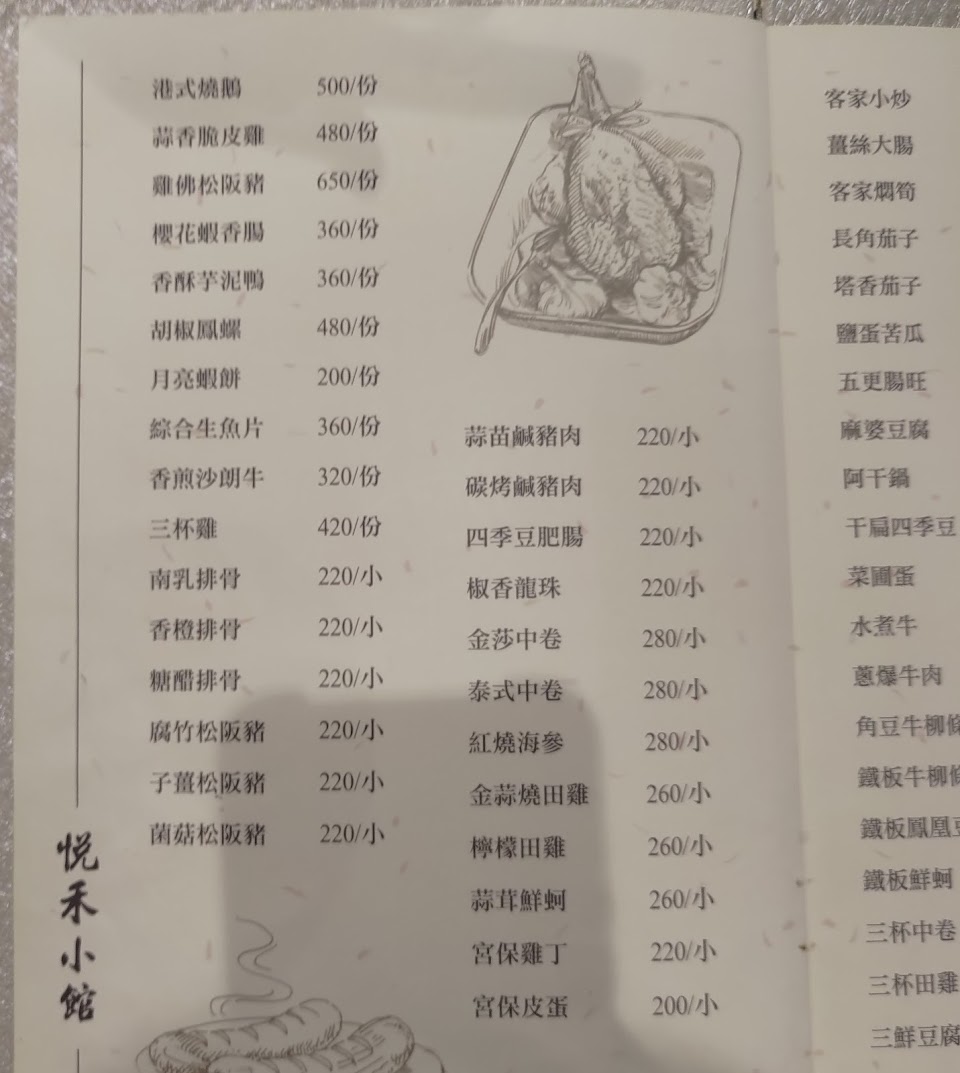 港式燒鵝 500/份
蒜香脆皮雞 480/份
雞佛松阪豬 650/份
櫻花蝦香腸 360/份
香酥芋泥鴨 360/份
胡椒鳳螺 480/份
月亮蝦餅 200/份
綜合生魚片 360/份
香煎沙朗牛 320/份
三杯雞 420/份
南乳排骨 220/小
香橙排骨 220/小
糖醋排骨 220/小
腐竹松阪豬 220/小
子薑松阪豬 220/小
菌菇松阪豬 220/小
悅禾小館
蒜苗鹹豬肉 220/小
碳烤鹹豬肉 220/小
四季豆肥腸 220/小
椒香龍珠 220/小
金莎中卷 280/小
泰式中卷 280/小
紅燒海參 280/小
金蒜燒田雞 260/小
檸檬田雞 260/小
蒜茸鮮蚵 260/小
宮保雞丁 220/小
宮保皮蛋 200/小
客家小炒
薑絲大腸
客家燜筍
長角茄子
塔香茄子
鹽蛋苦瓜
五更腸旺
麻婆豆腐
阿干鍋
干扁四季豆
菜圃蛋
水煮牛
蔥爆牛肉
角豆牛柳條
鐵板牛柳條
鐵板鳳凰豆
鐵板鮮蚵
三杯中卷
三杯田雞
三鮮豆腐